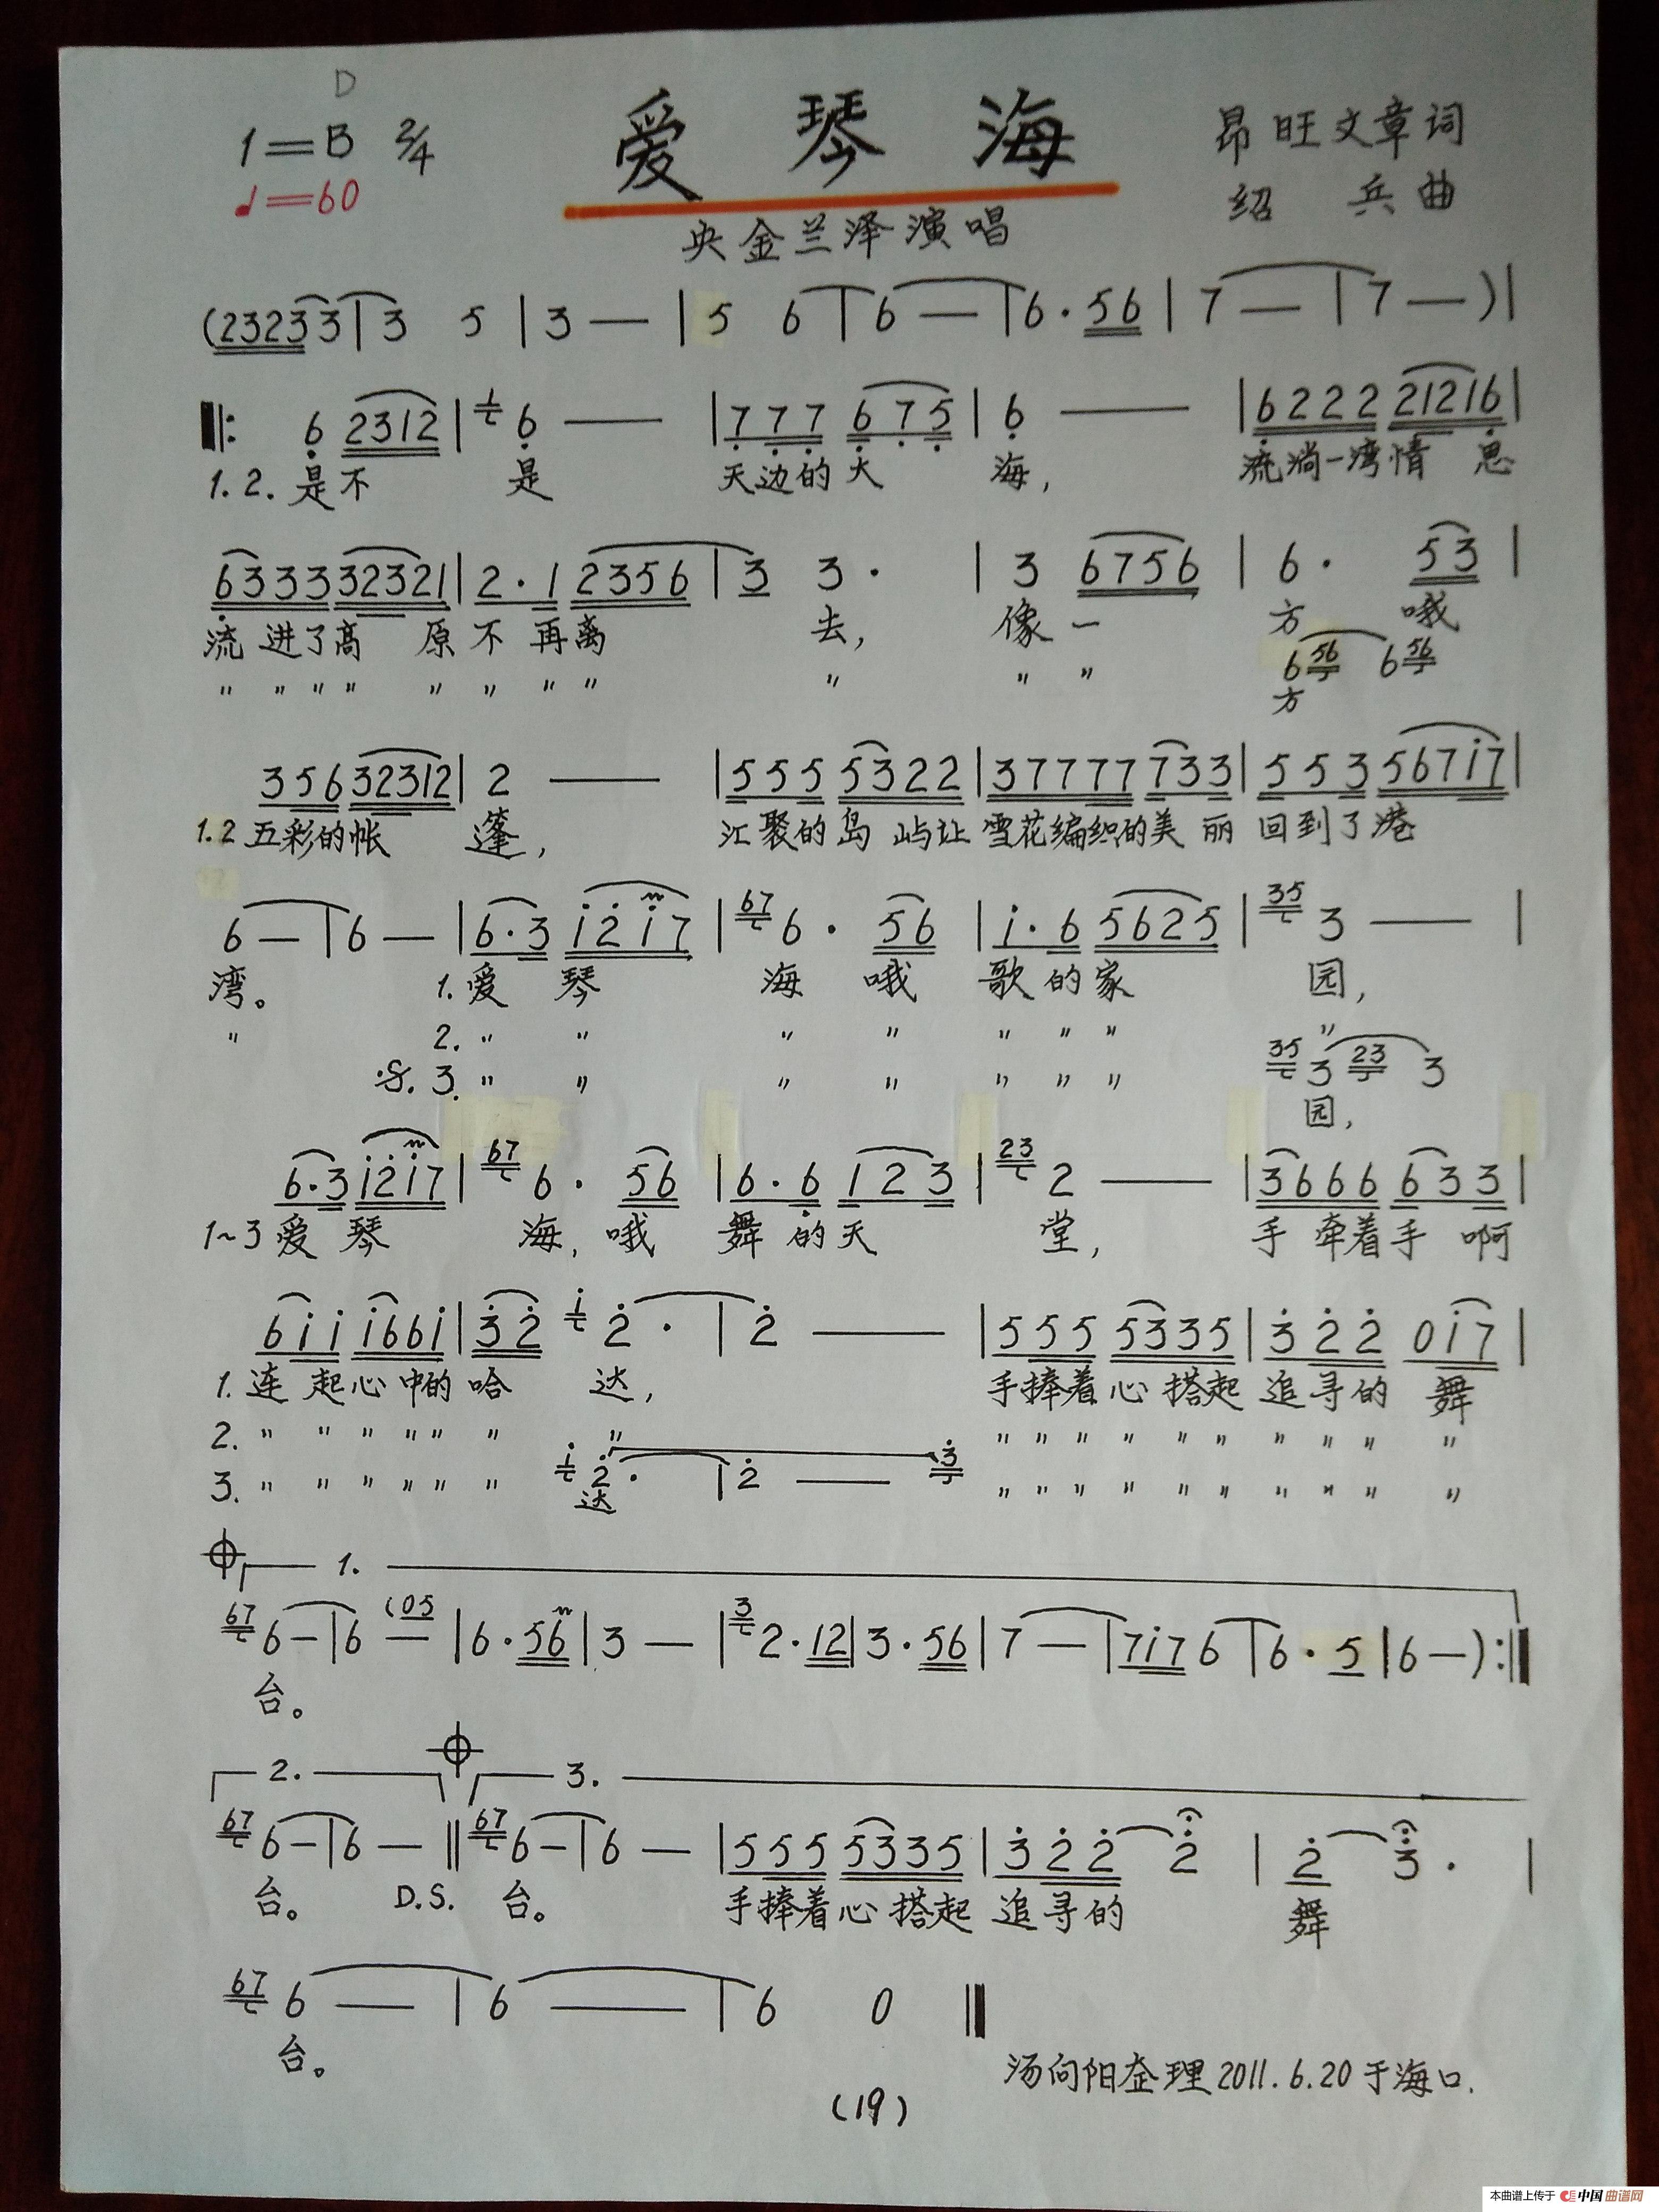 D
1=B 2/4 爱琴海 昂旺文章词
♩=60 央金兰泽演唱 绍兵曲
(23233|3 5|3 —|5 6|6 —|6·56|7 —|7 —)|
‖: 6 2312|1 6 —|777 675|6 —|6222 21216|
1.2.是不 是 天边的大 海, 流淌一湾情 思
6333 32321|2·1 2356|3 3·|3 6756|6· 53|
流进了高 原不再离 去, 像一 方 哦
〃 〃 〃 〃 〃 〃 〃 〃 〃 〃 〃 6 56 6 56
方
356 32312|2 —|555 5322|37777 733|553 567i7|
1.2 五彩的帐 篷, 汇聚的岛 屿让 雪花编织的美 丽 回到了港
6 —|6 —|6·3 i2i7|67 6· 56|i·6 5625|35 3 —|
湾。 1.爱 琴 海 哦 歌的家 园,
〃 2. 〃 〃 〃 〃 〃 〃 〃 〃
·S. 3. 〃 〃 〃 〃 〃 〃 〃 35 3 23 3
园,
6·3 i2i7|67 6· 56|6·6 123|23 2 —|3666 633|
1~3 爱 琴 海, 哦 舞 的天 堂, 手 牵着手 啊
6ii i66i|32 i 2·|2 —|555 5335|322 0i7|
1. 连 起心 中的 哈 达, 手捧着心 搭起 追寻的 舞
2. 〃 〃 〃 〃 〃 〃 〃 〃 〃 〃 〃 〃 〃 〃 〃 〃 〃
3. 〃 〃 〃 〃 〃 〃 i 2·|2 — 3 〃 〃 〃 〃 〃 〃 〃 〃 〃 〃
达
1.
67 6 —|6 (05 —|6·56|3 —|3 2·12|3·56|7 —|7i7 6|6·5|6 —):‖
台。
2. 3.
67 6 —|6 —‖67 6 —|6 —|555 5335|322 2|2 3·|
台。 D.S. 台。 手捧着心 搭起 追寻的 舞
67 6 —|6 —|6 0‖
台。
汤向阳整理2011.6.20于海口.
(19)
本曲谱上传于 中国曲谱网